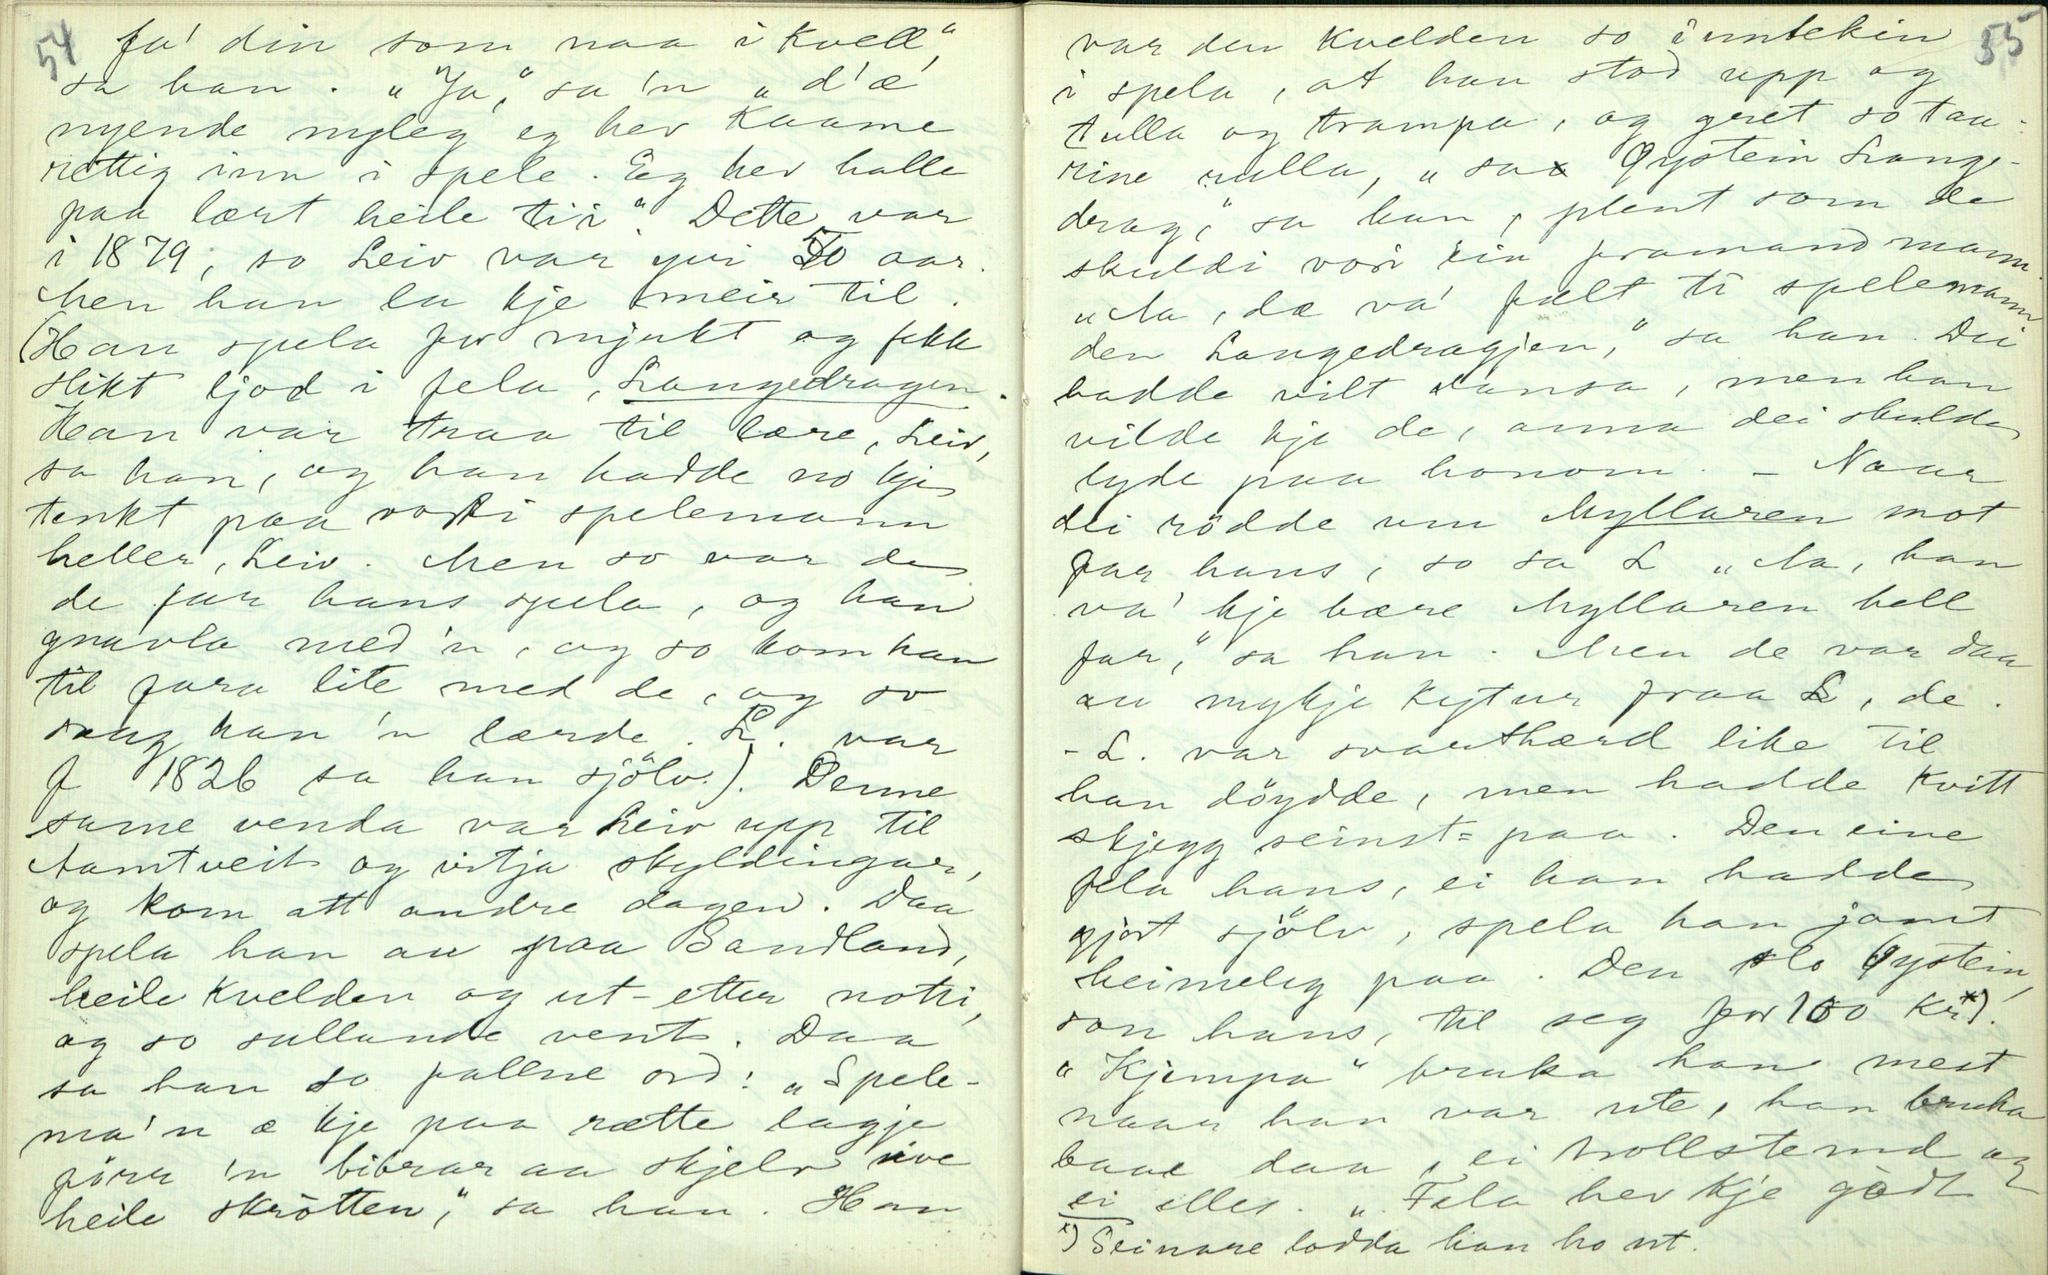 54
fa' din som naa i kvell,"
sa han. „Ja," sa 'n „d'æ
nyende nyleg eg hev kaame
rettig inn i spele. Eg hev halle
paa lært heile tii". Dette var
i 1879, so Leiv var yvi 50 aar.
Men han la kje meir til.
(Han spela for mjukt og fekk
slikt ljod i fela, Langedragen.
Han var traa til lære, Leiv,
sa han, og han hadde no kje
tenkt paa vori spelemann
heller, Leiv. Men so var de
de far hans spela, og han
gnavla med 'n, og so kom han
til fara lite med de, og so
han 'n lærde. L. var
f 1826 sa han sjölv.). Denne
same venda var Leiv upp til
Aamtveit og vitja skyldingar,
og kom att andre dagen. Daa
spela han au paa Sandland,
heile kvelden og ut-etter notti,
og so sullande vent. Daa
sa han so fallne ord: „Spele-
ma'n æ kje paa rætte lagje
förr 'n bibrar aa skjelv ive
heile skrötten," sa han. Han
55
var den kvelden so inntekin
i spela, at han stod upp og
tulla og trampa, og gret so taa-
rine rulla, „sa Øystein Lange-
drag," sa han, plent som de
skuldi vori ein framand mann.
„Aa, dæ va' fælt ti spelemann
den Langedragjen," sa han. Dei
hadde vilt dansa, men han
vilde kje de, anna dei skulde
lyde paa honom. – Naar
dei rödde um Myllaren mot
far hans, so sa L „Aa, han
va' kje bære Myllaren hell
far," sa han. Men de var daa
au mykje kytur fraa L, de.
– L. var svarthærd like til
han döydde, men hadde kvitt
skjegg seinst= paa. Den eine
fela hans, ei han hadde
gjort sjölv, spela han jamt
heimeleg paa. Den slo Øystein,
son hans, til seg for 100 kr*).
„Kjempa" bruka han mest
naar han var ute, han bruka
baae daa, ei trollstemd og
ei elles. „Fela hev kje godt
*) Seinare lodda han ho ut.